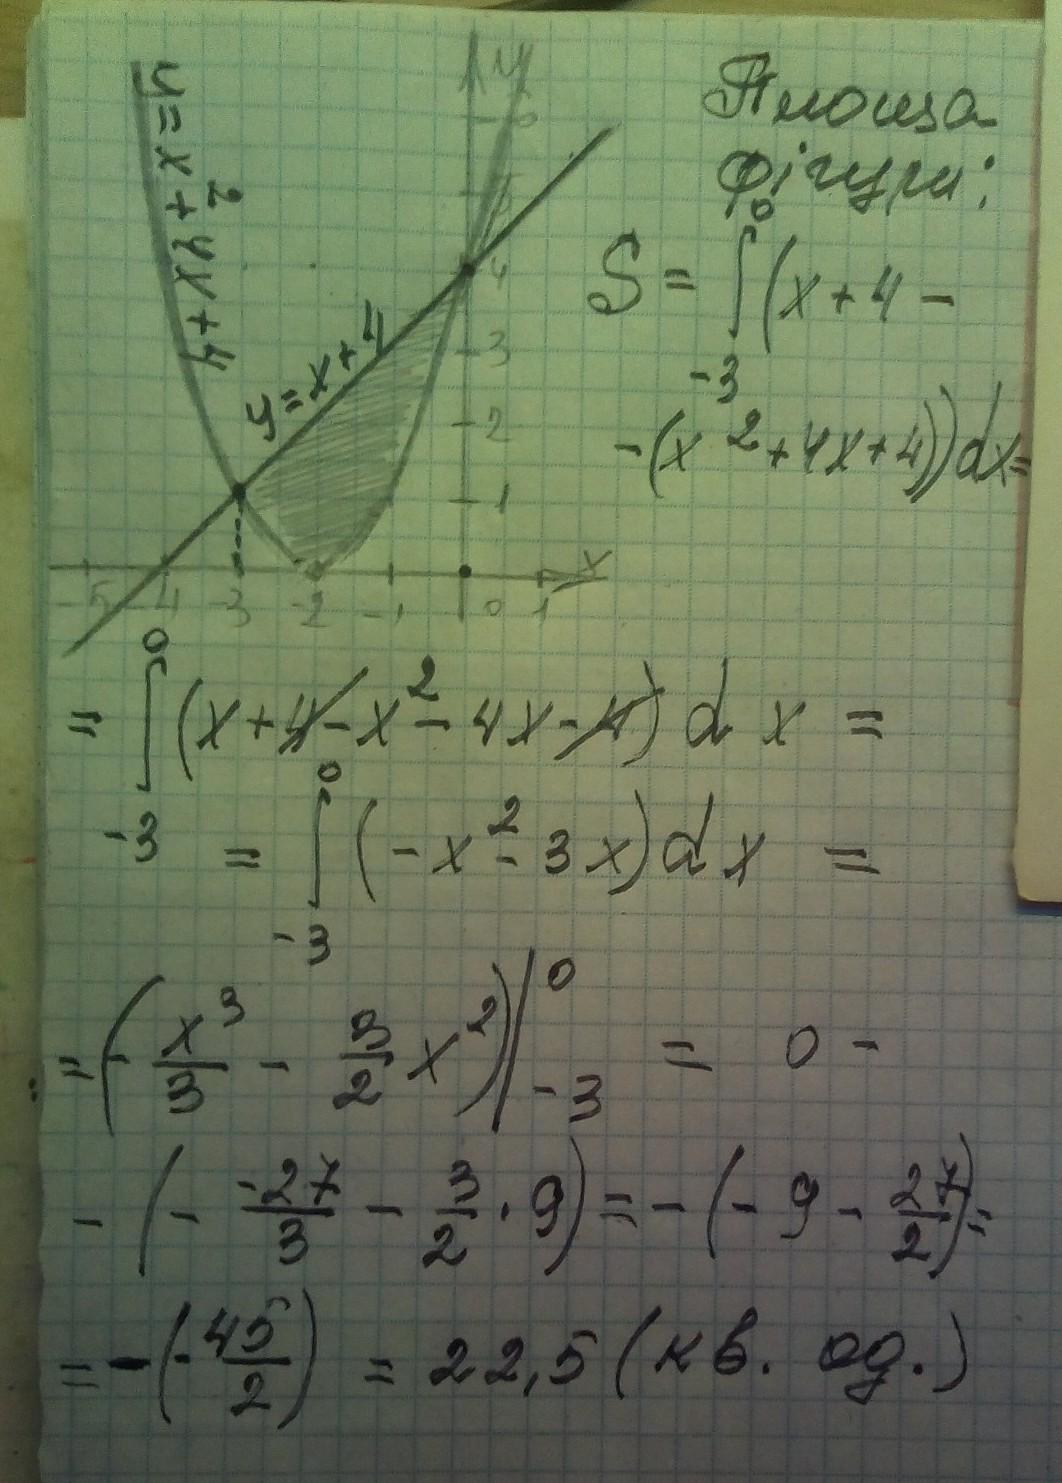 y = x² + 4x + 4
y = x + 4
y
6
5
4
3
2
1
x
-5 -4 -3 -2 -1 0 1
Площа
фігури:
S = ∫₋₃⁰ (x + 4 -
- (x² + 4x + 4)) dx =
= ∫₋₃⁰ (x + 4 - x² - 4x - 4) dx =
= ∫₋₃⁰ (-x² - 3x) dx =
= (- x³/3 - 3/2 x²) |₋₃⁰ = 0 -
- (- -27/3 - 3/2 · 9) = - (- 9 - 27/2) =
= - (- 45/2) = 22,5 (кв. од.)